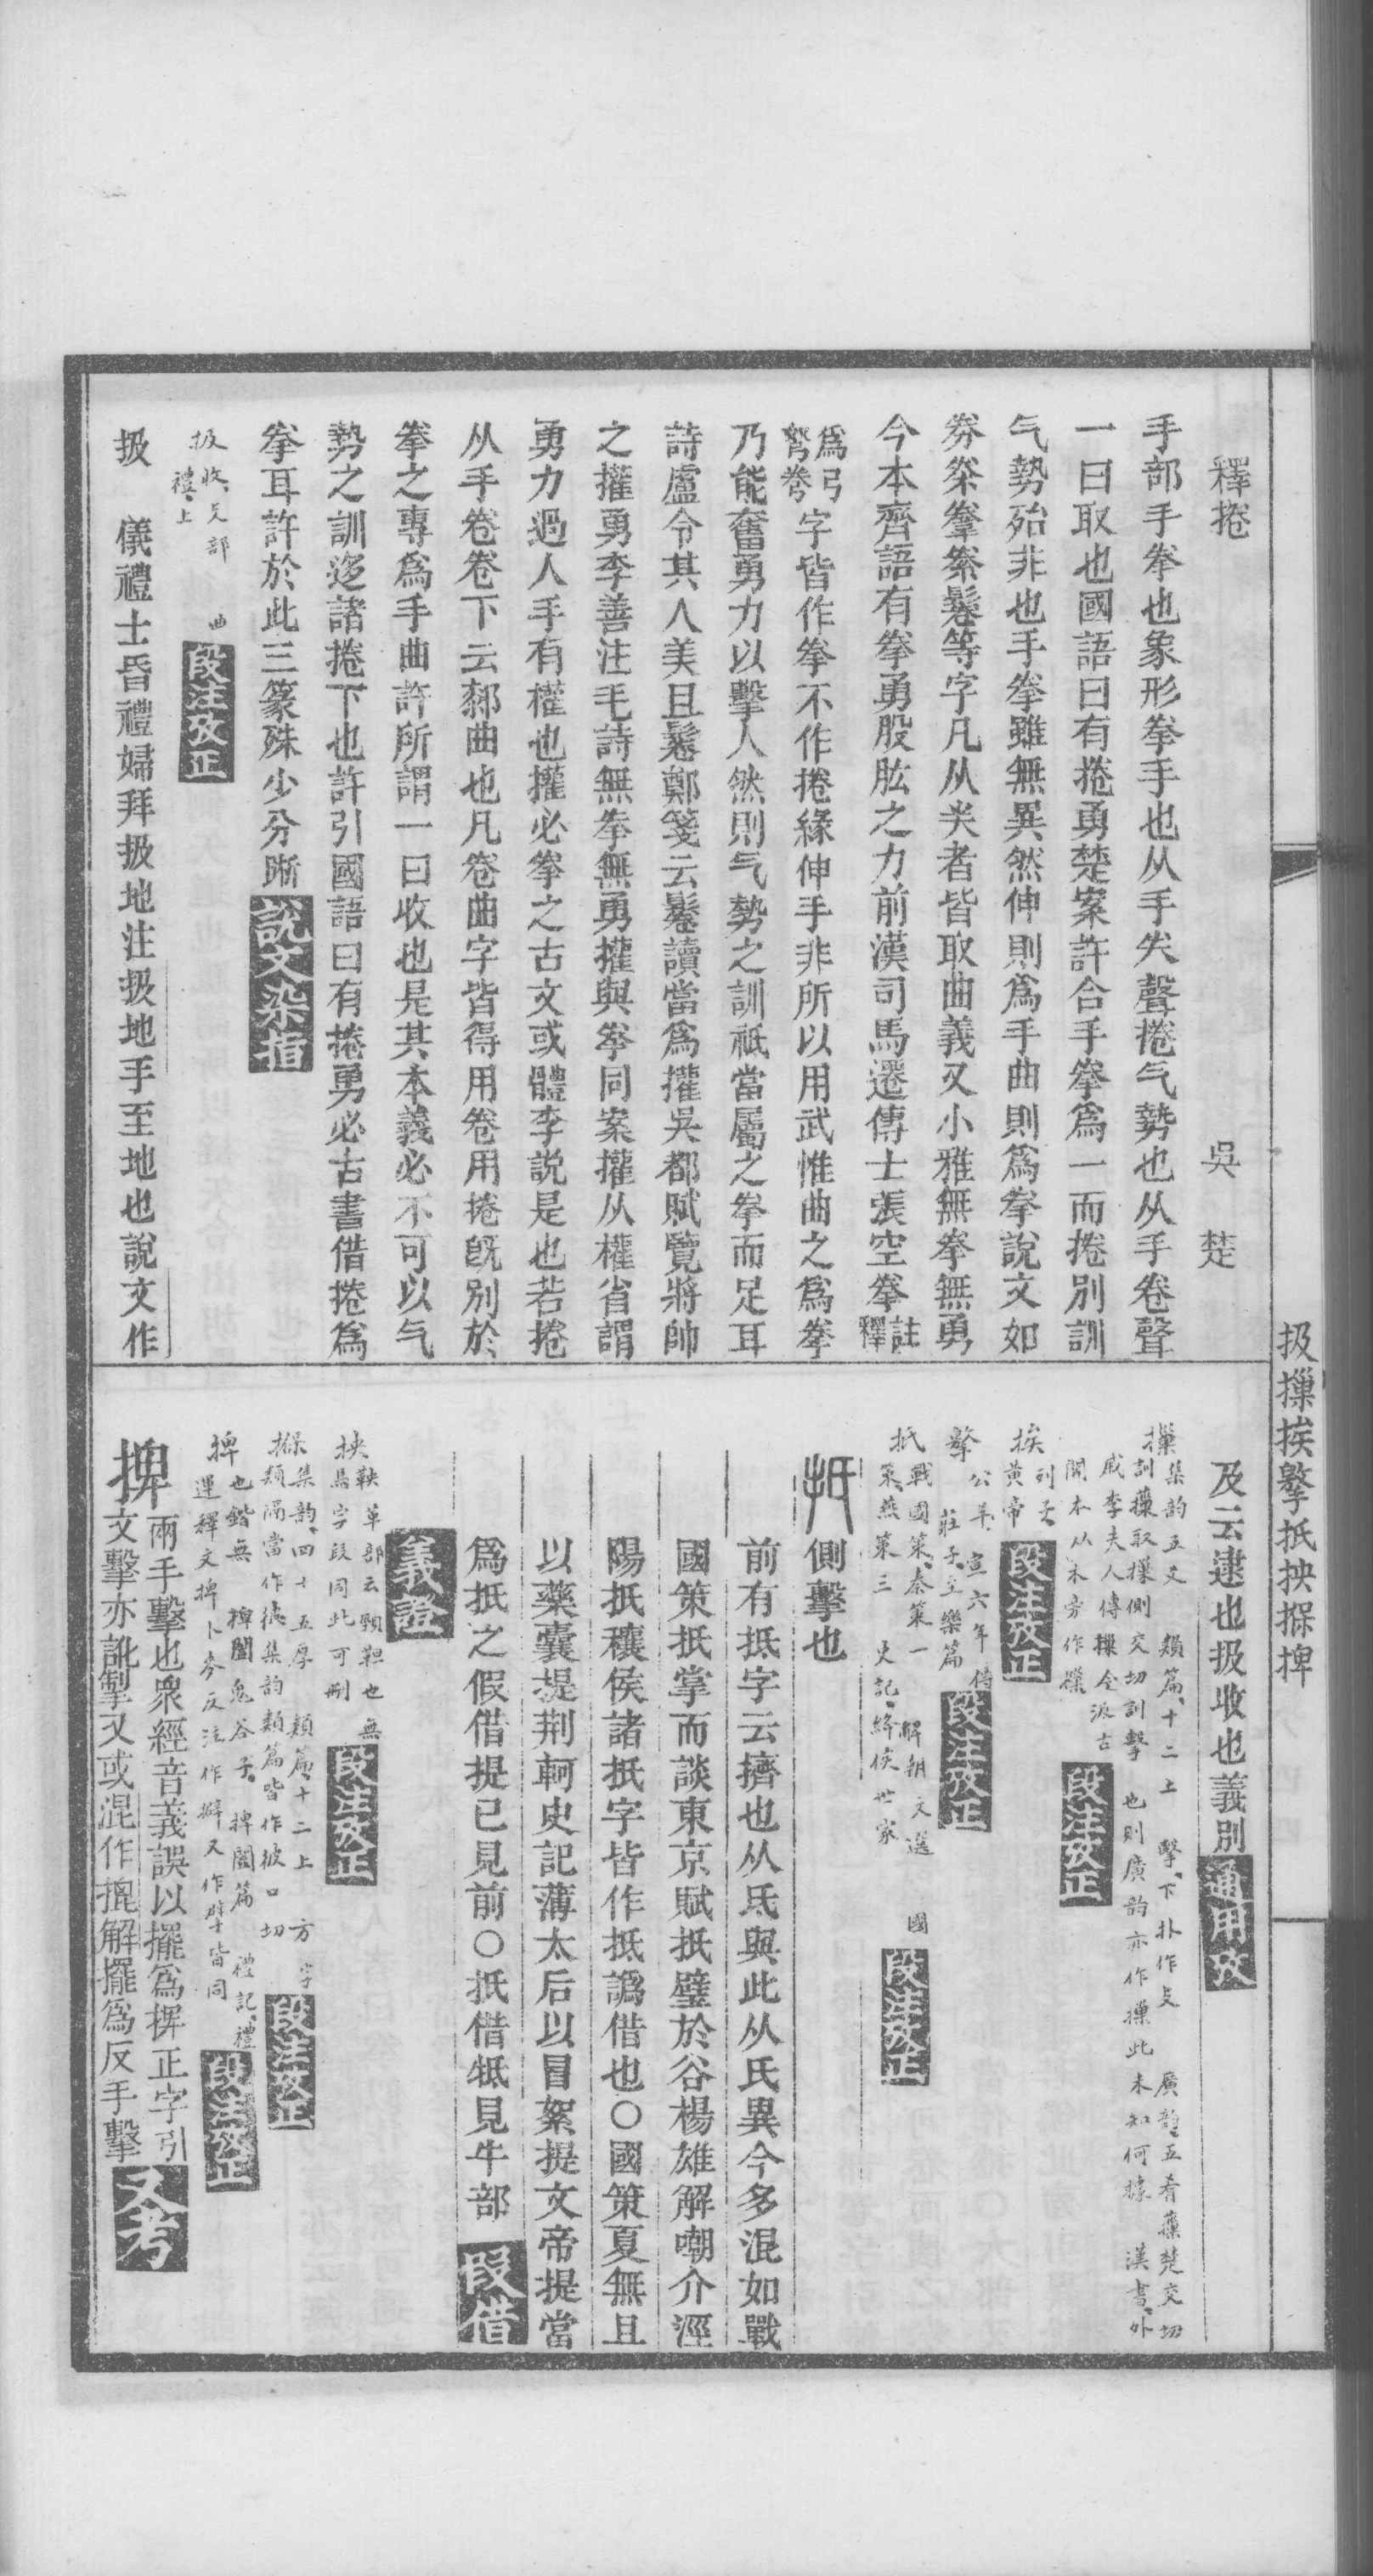 釋捲　吳楚
手部手拳也象形拳手也从手𢍏聲捲气勢也从手卷聲
一曰取也國語曰有捲勇楚案許合手拳爲一而捲別訓
气勢殆非也手拳雖無異然伸則爲手曲則爲拳說文如
等字凡从𢍏者皆取曲義又小雅無拳無勇
今本齊語有拳勇股肱之力前漢司馬遷傳士張空拳註釋
爲弓弩𢍏字皆作拳不作捲緣伸手非所以用武惟曲之爲拳
乃能奮勇力以擊人然則气勢之訓祗當屬之拳而足耳
詩盧令其人美且鬈鄭箋云鬈讀當爲攉吳都賦覽將帥
之攉勇李善注毛詩無拳無勇攉與拳同案攉从權省謂
勇力過人手有權也攉必拳之古文或體李說是也若捲
从手卷卷下云厀曲也凡卷曲字皆得用卷用捲旣別於
拳之專爲手曲許所謂一曰收也是其本義必不可以气
勢之訓迻諸捲下也許引國語曰有捲勇必古書借捲爲
拳耳許於此三篆殊少分晰 說文染指
扱 收攴部 曲禮上 段注攷正
扱　儀禮士昏禮婦拜扱地注扱地手至地也說文作
及云逮也扱收也義別 通用攷
摷 集韵五爻 類篇十二上 擊下扑作攴 廣韵五肴𦾱楚交切
訓取摷側交切訓擊也則廣韵亦作摷此未知何據 漢書外
戚李夫人傳摷全汲古
閣本从木旁作樔 段注攷正
挨 列子黃帝 段注攷正
擎 公羊宣六年傳 莊子至樂篇 段注攷正
抵 戰國策秦策一 解嘲文選 國
策燕策三 史記絳侯世家 段注攷正
抵 側擊也
前有抵字云擠也从氐與此从氏異今多混如戰
國策抵掌而談東京賦抵璧於谷楊雄解嘲介涇
陽抵穰侯諸抵字皆作抵譌借也○國策夏無且
以藥囊提荆軻史記薄太后以冒絮提文帝提當
爲抵之假借提已見前○抵借牴見牛部 段借
義證
抰 鞅革部云頸靼也無
馬字段同此可刪 段注攷正
㨐 集韵四十五厚 類篇十二上 方字
類隔當作彼集韵類篇皆作彼口切 段注攷正
捭 也鍇無 捭闔鬼谷子捭闔篇 禮記禮
運釋文捭卜麥反注作擗又作擘皆同 段注攷正
捭 兩手擊也眾經音義誤以擺爲捭正字引
文擊亦訛掣又或混作掍解擺爲反手擊 又考
扱摷挨擎抵抰㨐捭